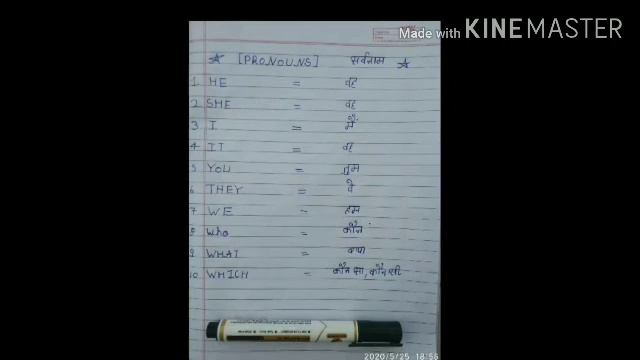 Made with KINEMASTER
☆ [PRONOUNS] सर्वनाम ☆
1 HE = वह
2 SHE = वह
3 I = मैं
4 IT = वह
5 YOU = तुम
6 THEY = वे
7 WE - हम
8 Who = कौन
9 WHAT = क्या
10. WHICH = कौन सा, कौन सी
2020/5/25 18:56